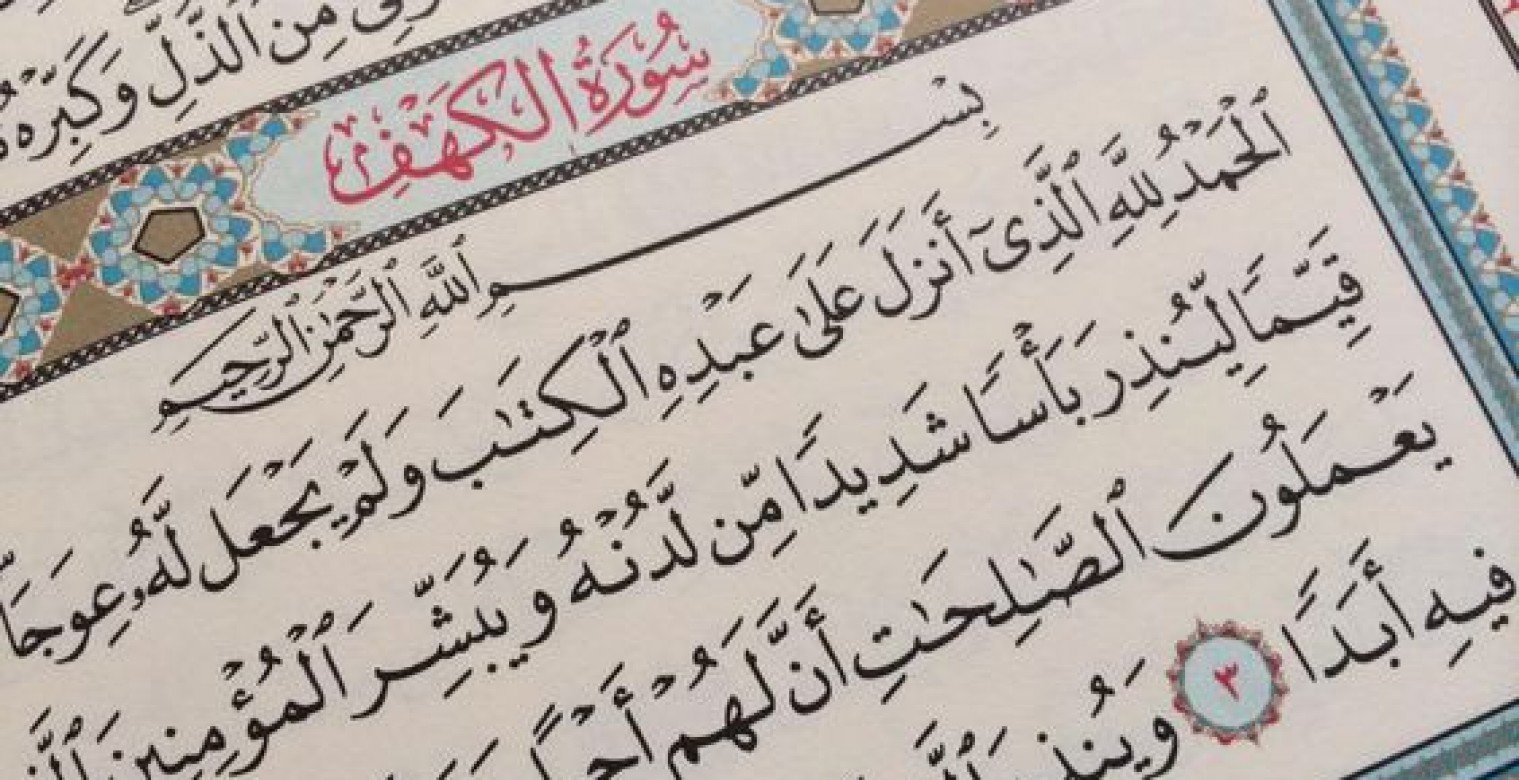 مِّنَ ٱلذُّلِّ وَكَبِّرْهُ
سُورَةُ الكَهْفِ
بِسْمِ ٱللَّهِ ٱلرَّحْمَٰنِ ٱلرَّحِيمِ
ٱلْحَمْدُ لِلَّهِ ٱلَّذِىٓ أَنزَلَ عَلَىٰ عَبْدِهِ ٱلْكِتَٰبَ وَلَمْ يَجْعَل لَّهُۥ عِوَجَاۜ
قَيِّمًا لِّيُنذِرَ بَأْسًا شَدِيدًا مِّن لَّدُنْهُ وَيُبَشِّرَ ٱلْمُؤْمِنِينَ
يَعْمَلُونَ ٱلصَّٰلِحَٰتِ أَنَّ لَهُمْ أَجْرًا
فِيهِ أَبَدًا ٣ وَيُنذِرَ